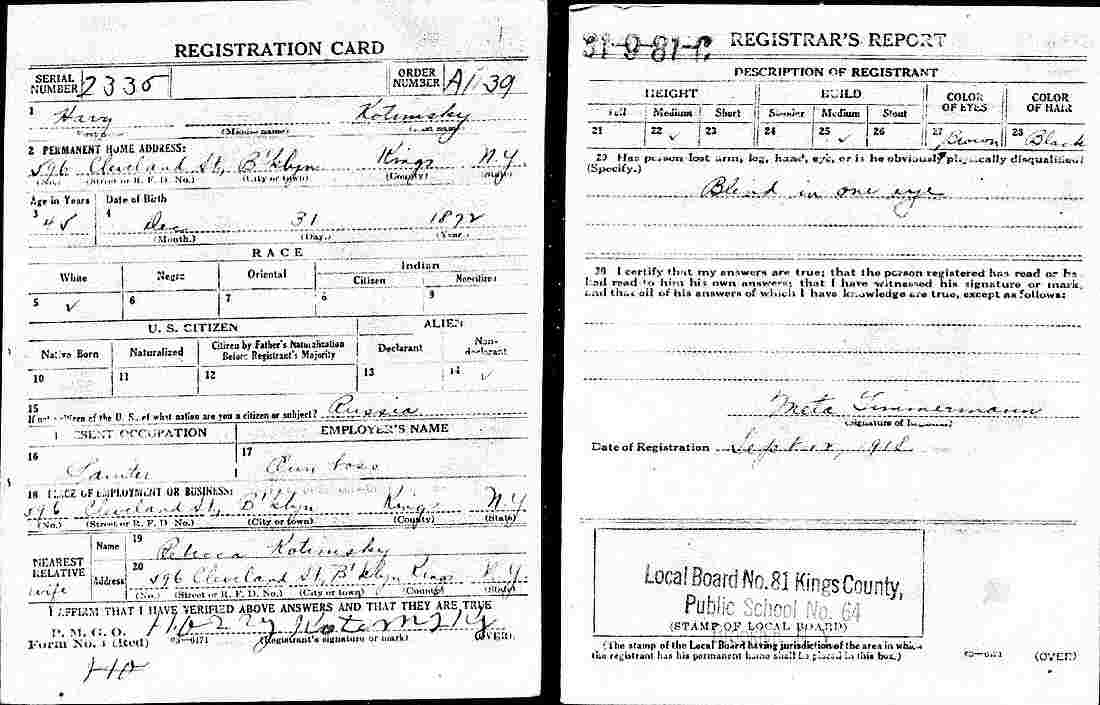 REGISTRATION CARD
SERIAL NUMBER 2336
ORDER NUMBER A1139
1 Harry Kotimsky
(Middle name)
2 PERMANENT HOME ADDRESS:
596 Cleveland St, B'klyn Kings N Y
(No.) (Street or R. F. D. No.) (City or town) (County) (State)
Age in Years Date of Birth
3 45 4 Dec 31 1872
(Month.) (Day.) (Year.)
RACE
White Negro Oriental Indian
Citizen Noncitizen
5 ✓ 6 7 8 9
U. S. CITIZEN ALIEN
Native Born Naturalized Citizen by Father's Naturalization Before Registrant's Majority Declarant Non-declarant
10 11 12 13 14 ✓
15
If not a citizen of the U. S., of what nation are you a citizen or subject? Russia
PRESENT OCCUPATION EMPLOYER'S NAME
16 17
Own boss
18 PLACE OF EMPLOYMENT OR BUSINESS:
596 Cleveland St, B'klyn Kings N Y
(No.) (Street or R. F. D. No.) (City or town) (County) (State)
NEAREST RELATIVE Name 19 Rebecca Kotimsky
wife Address 20 596 Cleveland St, B'klyn Kings N Y
(No.) (Street or R. F. D. No.) (City or town) (County) (State)
I AFFIRM THAT I HAVE VERIFIED ABOVE ANSWERS AND THAT THEY ARE TRUE
P. M. G. O.
Form No. 1 (Red) 03—6171 (Registrant's signature or mark) (OVER)
31-9-81-C REGISTRAR'S REPORT
DESCRIPTION OF REGISTRANT
HEIGHT BUILD COLOR OF EYES COLOR OF HAIR
Tall Medium Short Slender Medium Stout
21 22 ✓ 23 24 25 ✓ 26 27 Brown 28 Black
29 Has person lost arm, leg, hand, eye, or is he obviously physically disqualified?
(Specify.)
Blind in one eye
30 I certify that my answers are true; that the person registered has read or has
had read to him his own answers; that I have witnessed his signature or mark,
and that all of his answers of which I have knowledge are true, except as follows:
Meta Timmermann
(Signature of Registrar)
Date of Registration Sept 12, 1918
Local Board No. 81 Kings County,
Public School No. 64
(STAMP OF LOCAL BOARD)
(The stamp of the Local Board having jurisdiction of the area in which
the registrant has his permanent home shall be placed in this box.)
03—6171 (OVER)